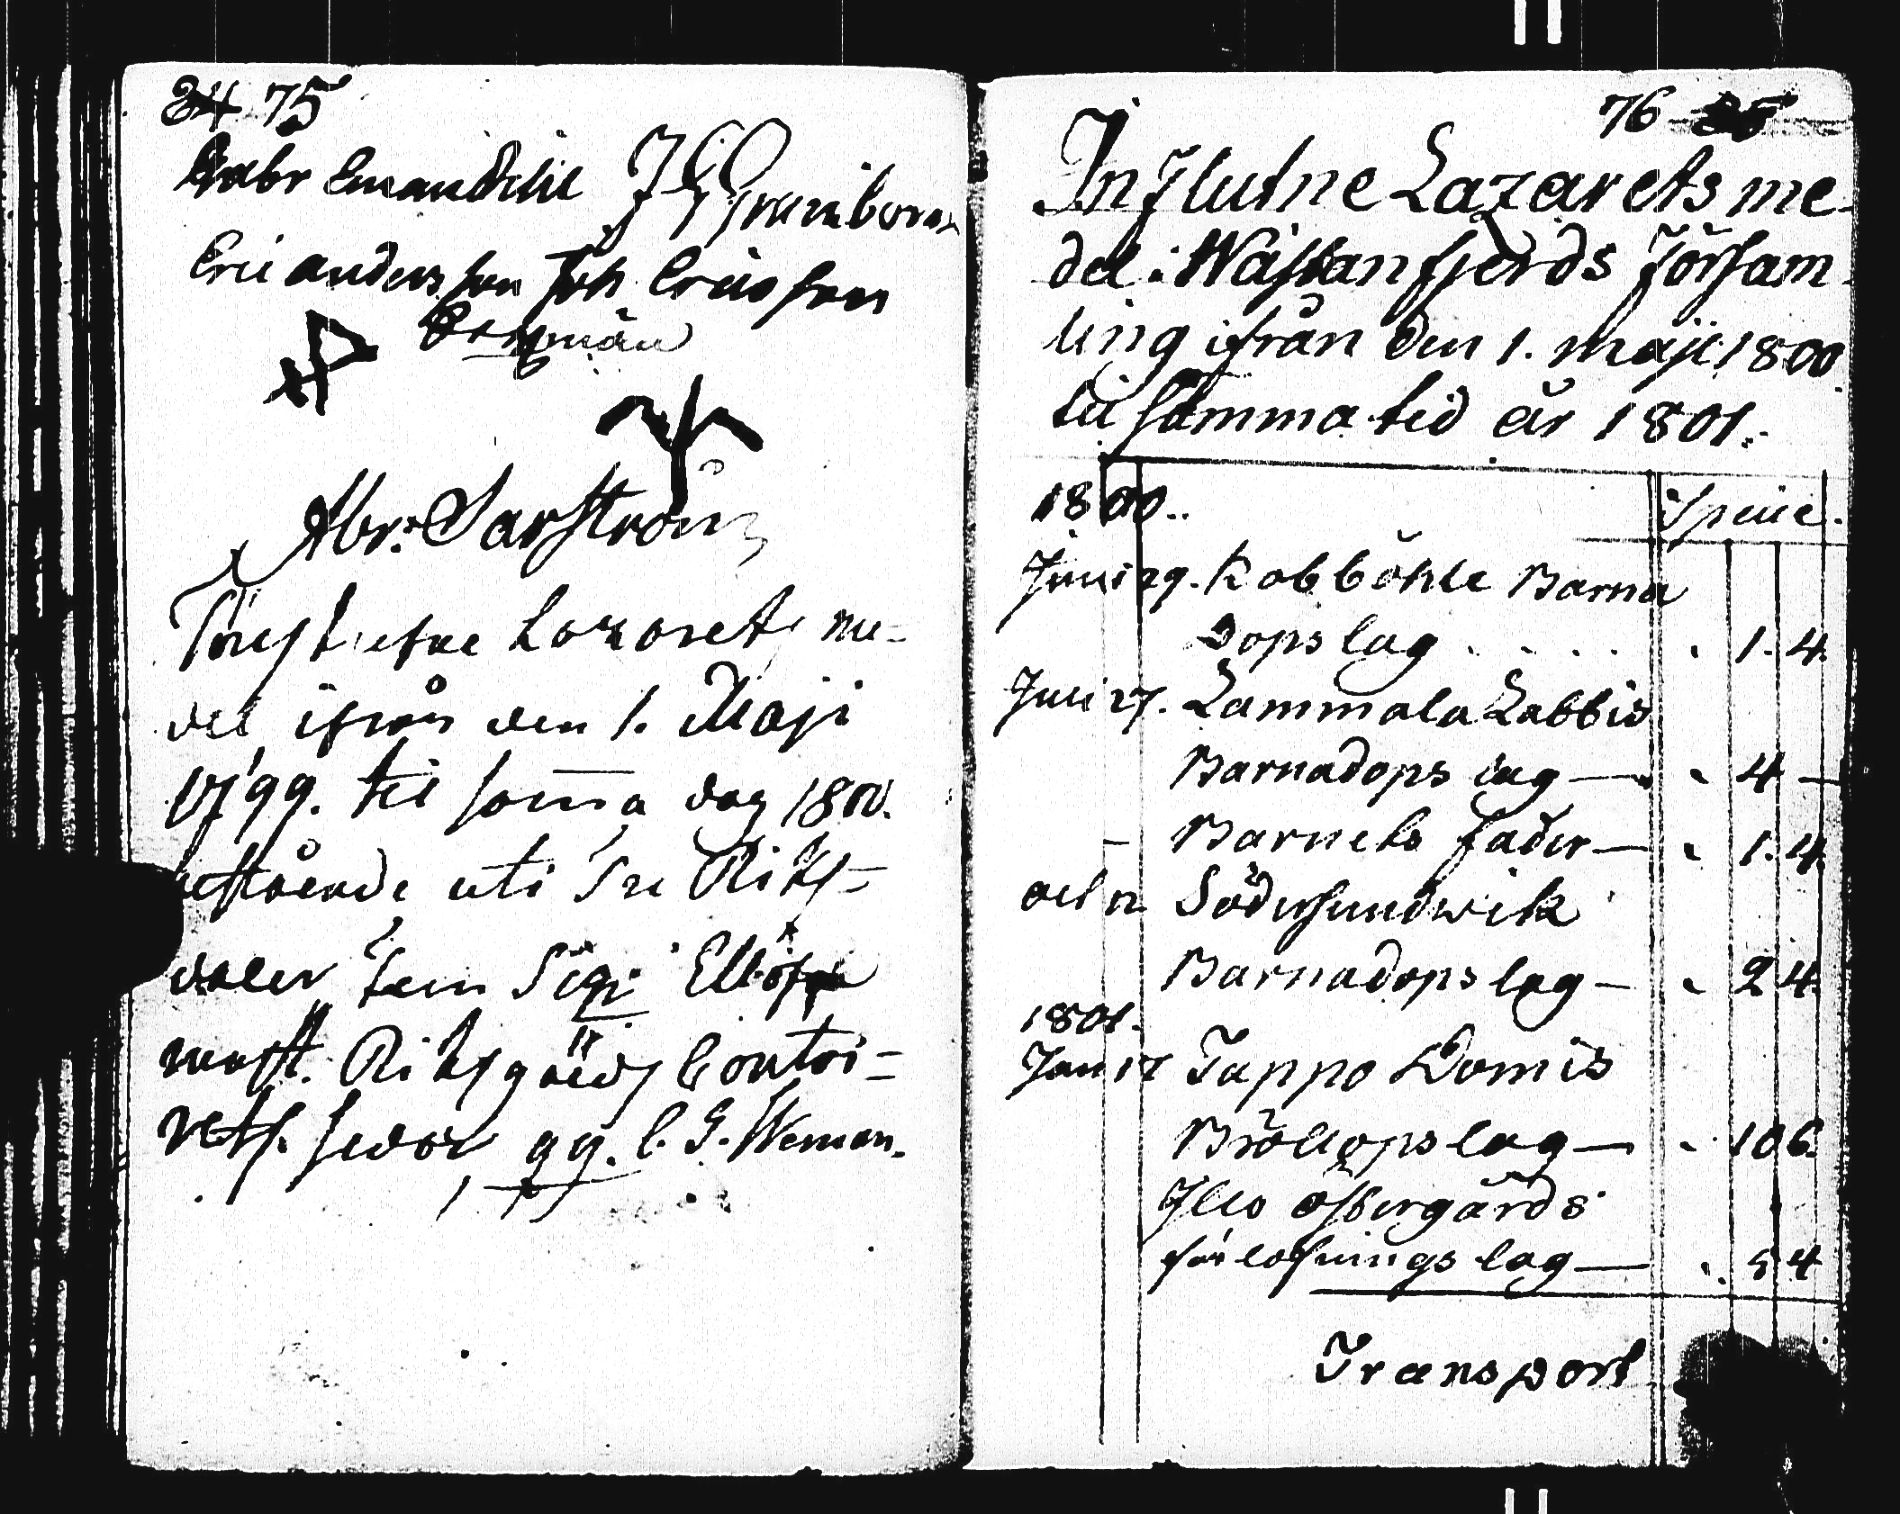 34 75
Gabr Emanuelss
Eric anders son Joh Ericsson
Bergman
Abr: Sarström
Inestetne Lazarets me-
del ifrån den 1. Maji
1799. til samma dag 1800.
bestående uti Sju Riks-
daler fem
Riksgäld Contoi-
rets sedlar gg. C. G. Weman.
76 35
Influtne Lazarets me-
del i Wästanfjerds Försam-
ling ifrån den 1. maji 1800.
til samma tid år 1801.
1800.. Specie.
Juni 29. Kobböhle Barna
Dops lag . . . . 1. 4.
Juli 27. Lammala Labbis
Barnadops lag — 4 —
— Barnets fader — 1. 4.
oct 12 Södersundwik
Barnadops lag — 2 4.
1801.
Jan 17 Tappo Domis
Bröllops lag — 10 6.
Illo östergårds
förlofnings lag — 5 4
Transport